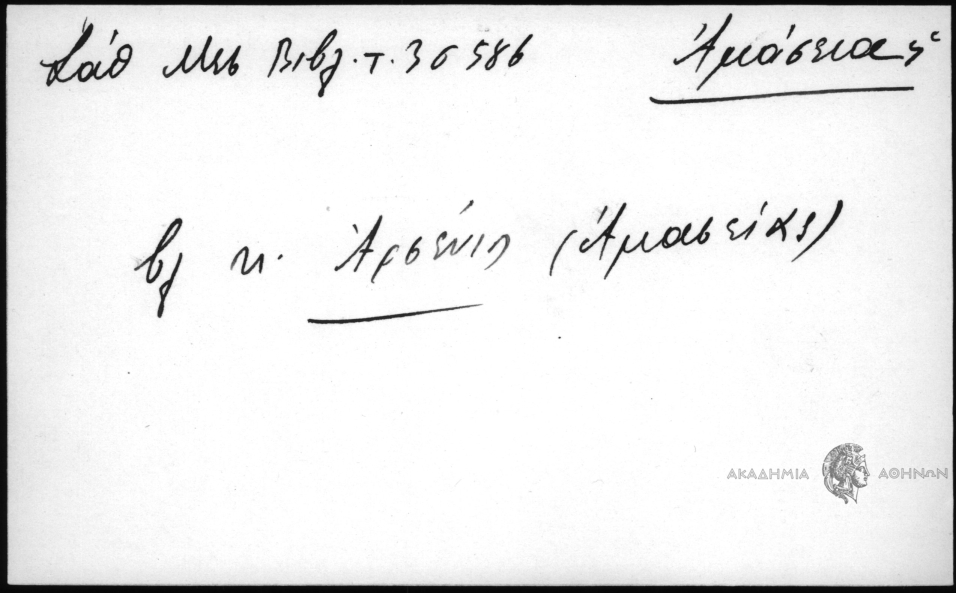 Σάθ Μεσ Βιβλ. τ. 3 σ 586 Ἀμάσειας
βλ κ. Ἀρσένιο (Ἀμασείας)
ΑΚΑΔΗΜΙΑ ΑΘΗΝΩΝ